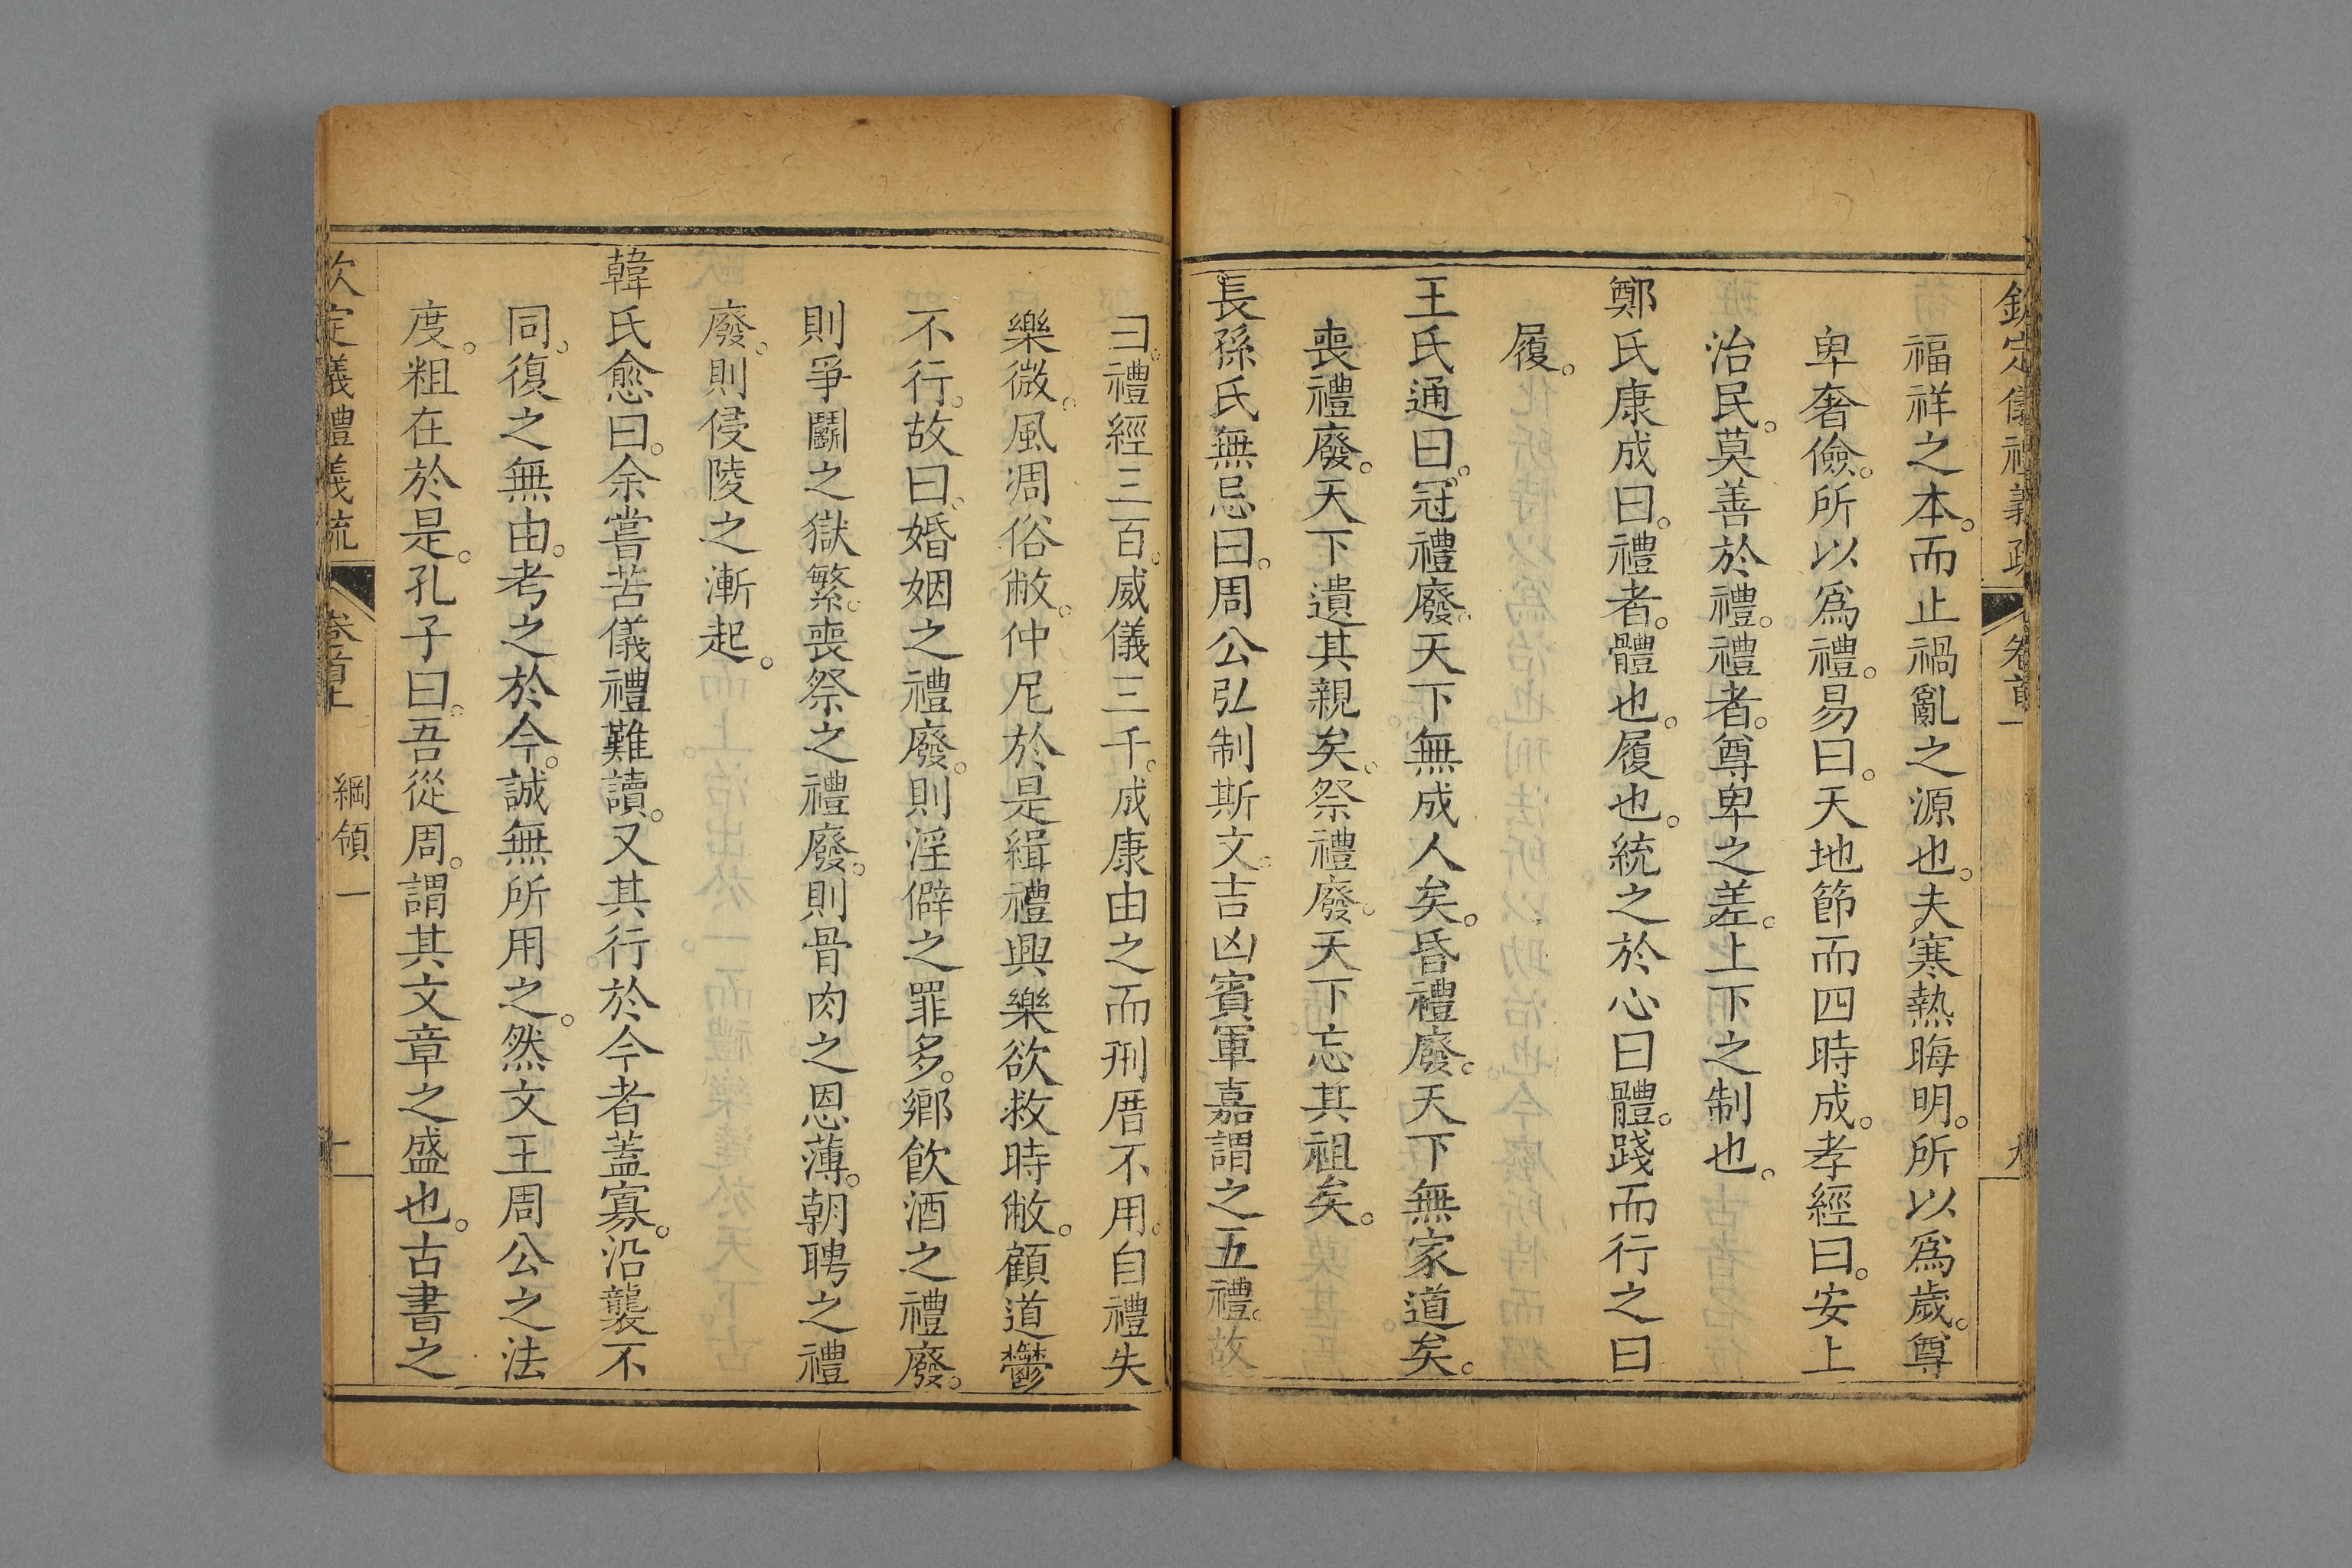 欽定儀禮義疏 卷首一 九
福祥之本。而止禍亂之源也。夫寒熱晦明。所以爲歲。尊
卑奢儉。所以爲禮。易曰。天地節而四時成。孝經曰。安上
治民。莫善於禮。禮者。尊卑之差。上下之制也。
鄭氏康成曰。禮者。體也。履也。統之於心曰體。踐而行之曰
履。
王氏通曰。冠禮廢。天下無成人矣。昏禮廢。天下無家道矣。
喪禮廢。天下遺其親矣。祭禮廢。天下忘其祖矣。
長孫氏無忌曰。周公弘制斯文。吉凶賓軍嘉謂之五禮。故
曰。禮經三百。威儀三千。成康由之而刑厝不用。自禮失
樂微。風凋俗敝。仲尼於是緝禮興樂欲救時敝。顧道鬱
不行。故曰。婚姻之禮廢。則淫僻之罪多。鄉飲酒之禮廢。
則爭鬭之獄繁。喪祭之禮廢。則骨肉之恩薄。朝聘之禮
廢。則侵陵之漸起。
韓氏愈曰。余嘗苦儀禮難讀。又其行於今者蓋寡。沿襲不
同。復之無由。考之於今。誠無所用之。然文王周公之法
度。粗在於是。孔子曰。吾從周。謂其文章之盛也。古書之
欽定儀禮義疏 卷首上 綱領一 十